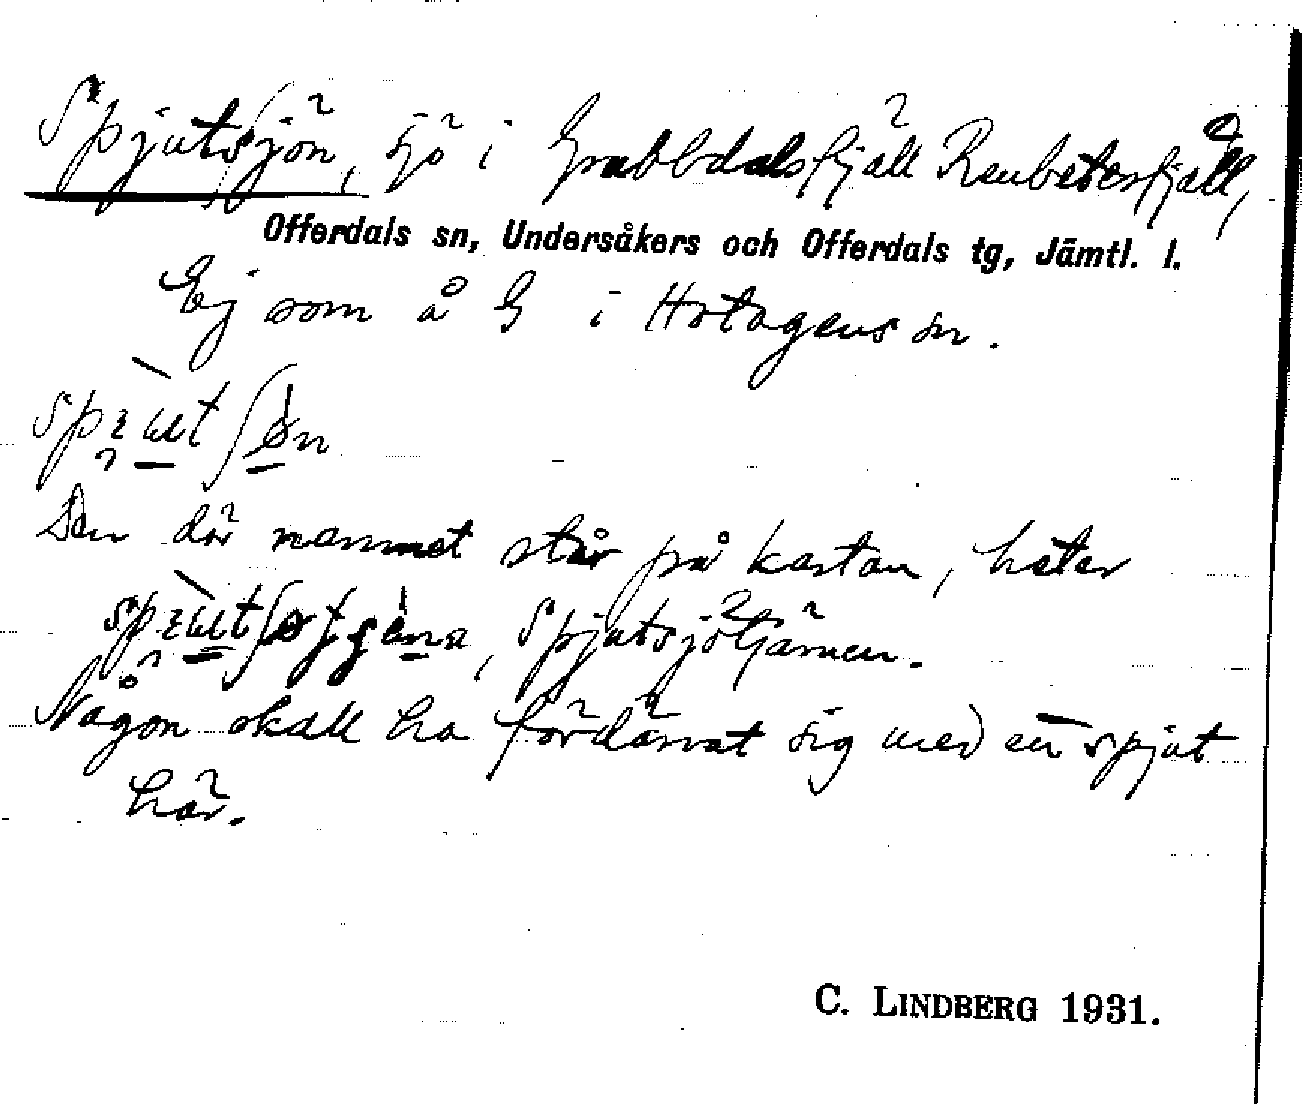 Spjutsjön, sjö i Grubbdalsfjäll Renbetesfjäll,
Offerdals sn, Undersåkers och Offerdals tg, Jämtl. l.
Ej som å G i Hotagens sn.
Den där namnet står på kartan, heter
, Spjutsjötjärnen.
Någon skall ha fördärvat sig med en spjut
här.
C. LINDBERG 1931.